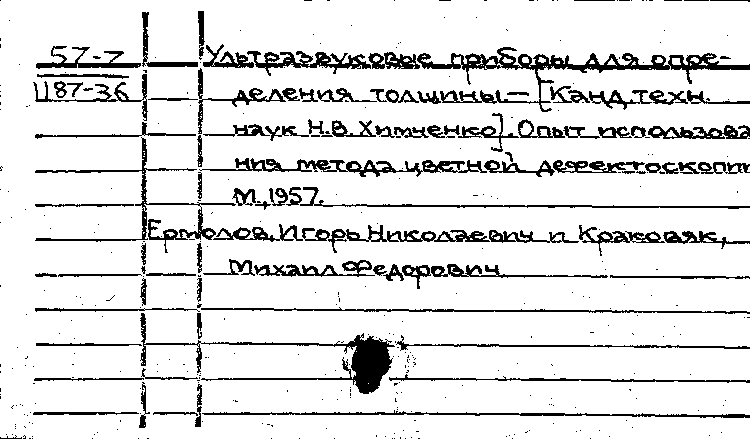 57-7 Ультразвуковые приборы для опре-
1187-36 деления толщины.— [Канд. техн.
наук Н.В. Химченко]. Опыт использова
ния метода цветной дефектоскопии
М., 1957.
Ермолов, Игорь Николаевич и Краковяк,
Михаил Федорович